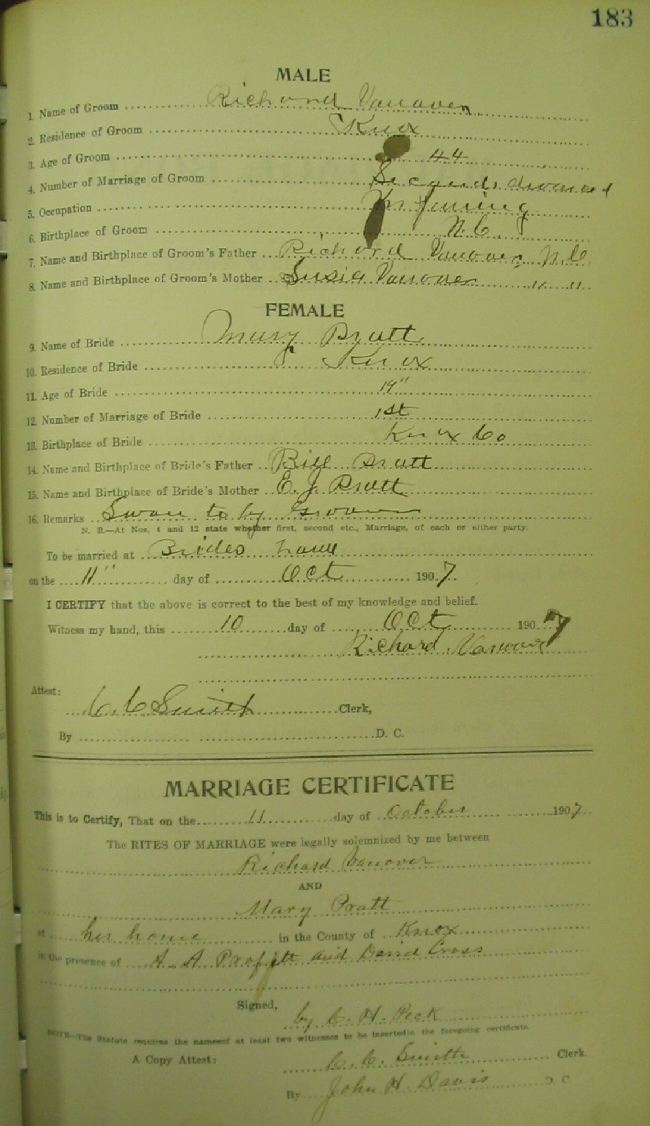 183
MALE
1. Name of Groom Richard Vanover
2. Residence of Groom Knox
3. Age of Groom 44
4. Number of Marriage of Groom Second, divorced
5. Occupation Farming
6. Birthplace of Groom N.C.
7. Name and Birthplace of Groom's Father Richard Vanover, N.C.
8. Name and Birthplace of Groom's Mother Susia Vanover " "
FEMALE
9. Name of Bride Mary Pratt
10. Residence of Bride Knox
11. Age of Bride 19"
12. Number of Marriage of Bride 1st
13. Birthplace of Bride Knox Co
14. Name and Birthplace of Bride's Father Bill Pratt
15. Name and Birthplace of Bride's Mother E. J. Pratt
16. Remarks Swan to by Groom
N. B.—At Nos. 4 and 12 state whether first, second etc., Marriage, of each or either party.
To be married at Brides home
on the 11" day of Oct 1907.
I CERTIFY that the above is correct to the best of my knowledge and belief.
Witness my hand, this 10 day of Oct 1907
Richard Vanover
Attest:
C. C. Smith Clerk,
By D. C.
MARRIAGE CERTIFICATE
This is to Certify, That on the 11 day of October 1907
The RITES OF MARRIAGE were legally solemnized by me between
Richard Vanover
AND
Mary Pratt
at her home in the County of Knox
in the presence of A. A. Proffitt and David Cross
Signed,
by C. H. Peck
NOTE—The Statute requires the names of at least two witnesses to be inserted in the foregoing certificate.
A Copy Attest: C. C. Smith Clerk.
By John H. Davis D C